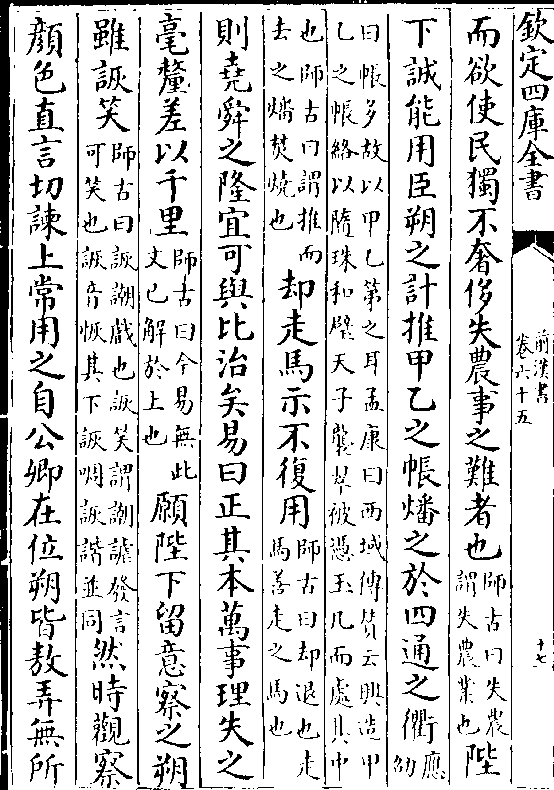 欽定四庫全書
前漢書
卷六十五
十七
而欲使民獨不奢侈失農事之難者也師古曰失農謂失農業也陛
下誠能用臣朔之計推甲乙之帳燔之於四通之衢應劭
曰帳多故以甲乙第之耳孟康曰西域傳贊云興造甲
乙之帳絡以隨珠和璧天子襲翠被憑玉几而處其中
也師古曰謂推而去之燔焚燒也却走馬示不復用師古曰却退也走馬善走之馬也
則堯舜之隆宜可與比治矣易曰正其本萬事理失之
毫釐差以千里師古曰今易無此文已解於上也願陛下留意察之朔
雖詼笑師古曰詼謿戲也詼笑謂謿謔發言可笑也詼音恢其下詼啁詼諧並同然時觀察
顔色直言切諫上常用之自公卿在位朔皆敖弄無所